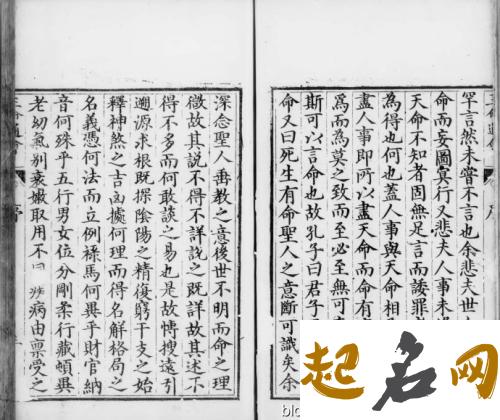 罕言然未嘗不言也余悲夫世
命而妄圖冥行又悲夫人事未
天命不知者固無足言而諉罪
為得也何也蓋人事與天命相
盡人事即所以盡天命而命有
為而為莫之致而至必至無可
斯可以言命也故孔子曰君子
命又曰死生有命聖人之意斷可識矣余
深念聖人垂教之意後世不明而命之理
徵故其說不得不詳說之既詳故其述不
得不多而何敢談之易也是故愽搜遠引
遡源求根既探陰陽之精復窮干支之始
釋神煞之吉凶據何理而得名解格局之
名義憑何法而立例祿馬何異乎財官納
音何殊乎五行男女位分剛柔行藏頓異
老幼氣別衰嫩取用不 病由稟受之
序
起名网